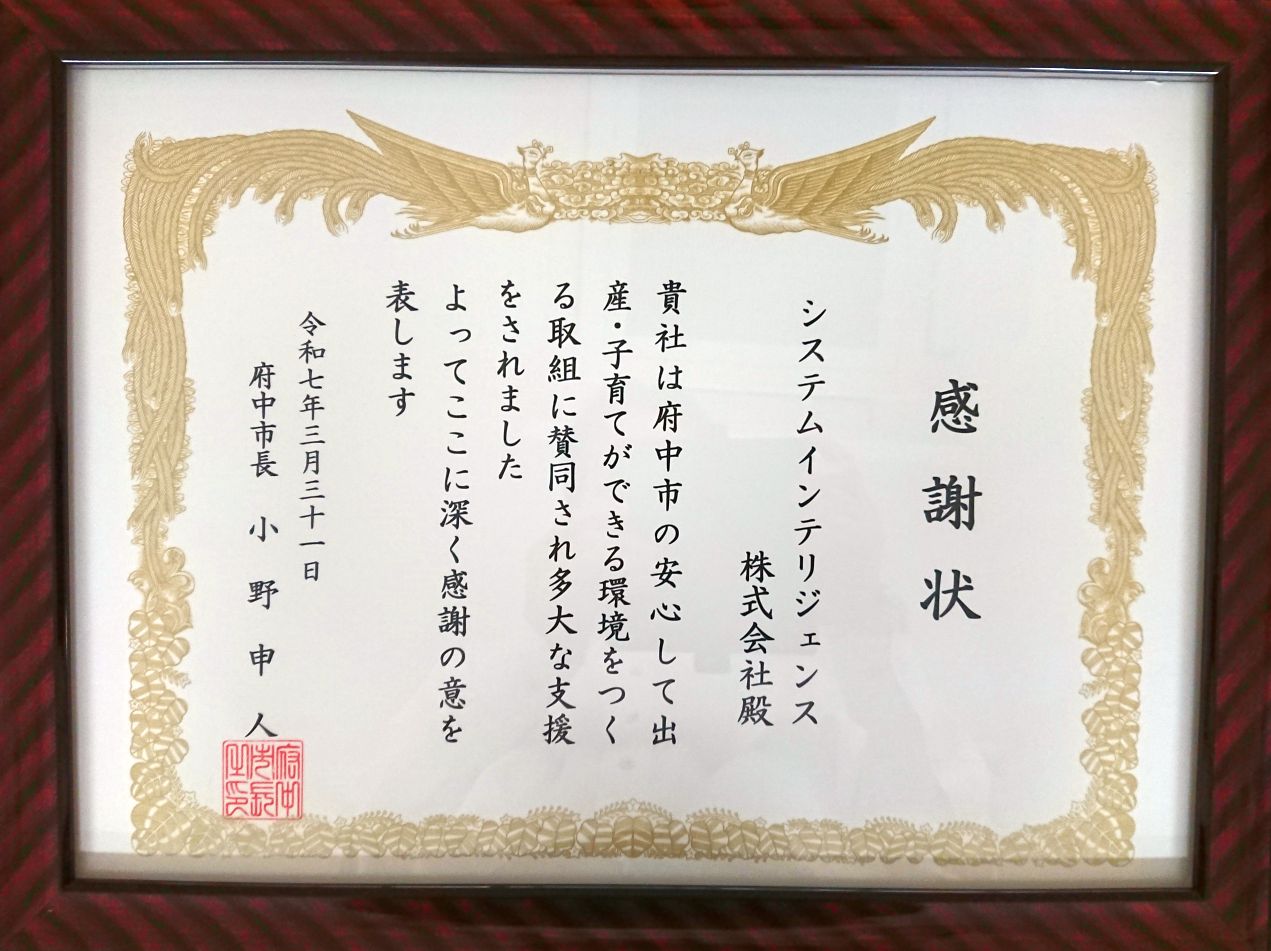 感謝状
システムインテリジェンス
株式会社殿
貴社は府中市の安心して出
産・子育てができる環境をつく
る取組に賛同され多大な支援
をされました
よってここに深く感謝の意を
表します
令和七年三月三十一日
府中市長 小野申人
府中
市長
之印